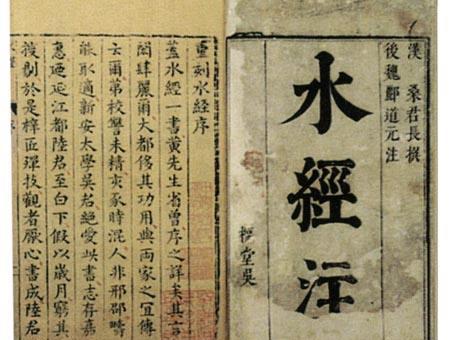 漢 桑君長撰
後魏酈道元注
水經注
重刻水經序
蓋水經一書黃先生省曾序之詳矣其言
閎肆麗爾大都侈其功用與兩家之宜傳
云爾第校讐未精亥豕時混人非邢邵疇
能取適新安太學吳君絕愛此書志存嘉
惠廼延江都陸君至白下假以歲月窮其
搜剔於是梓匠殫技觀者厭心書成陸君